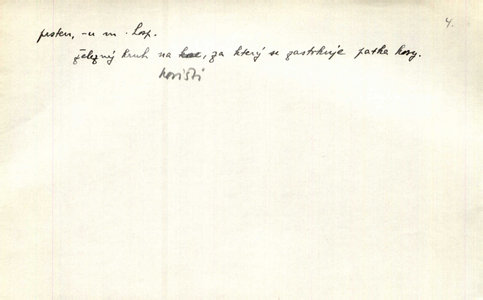 4.
prsten, -u m. hosp.
železný kruh na kose, za který se zastrkuje patka kosy.
kosišti